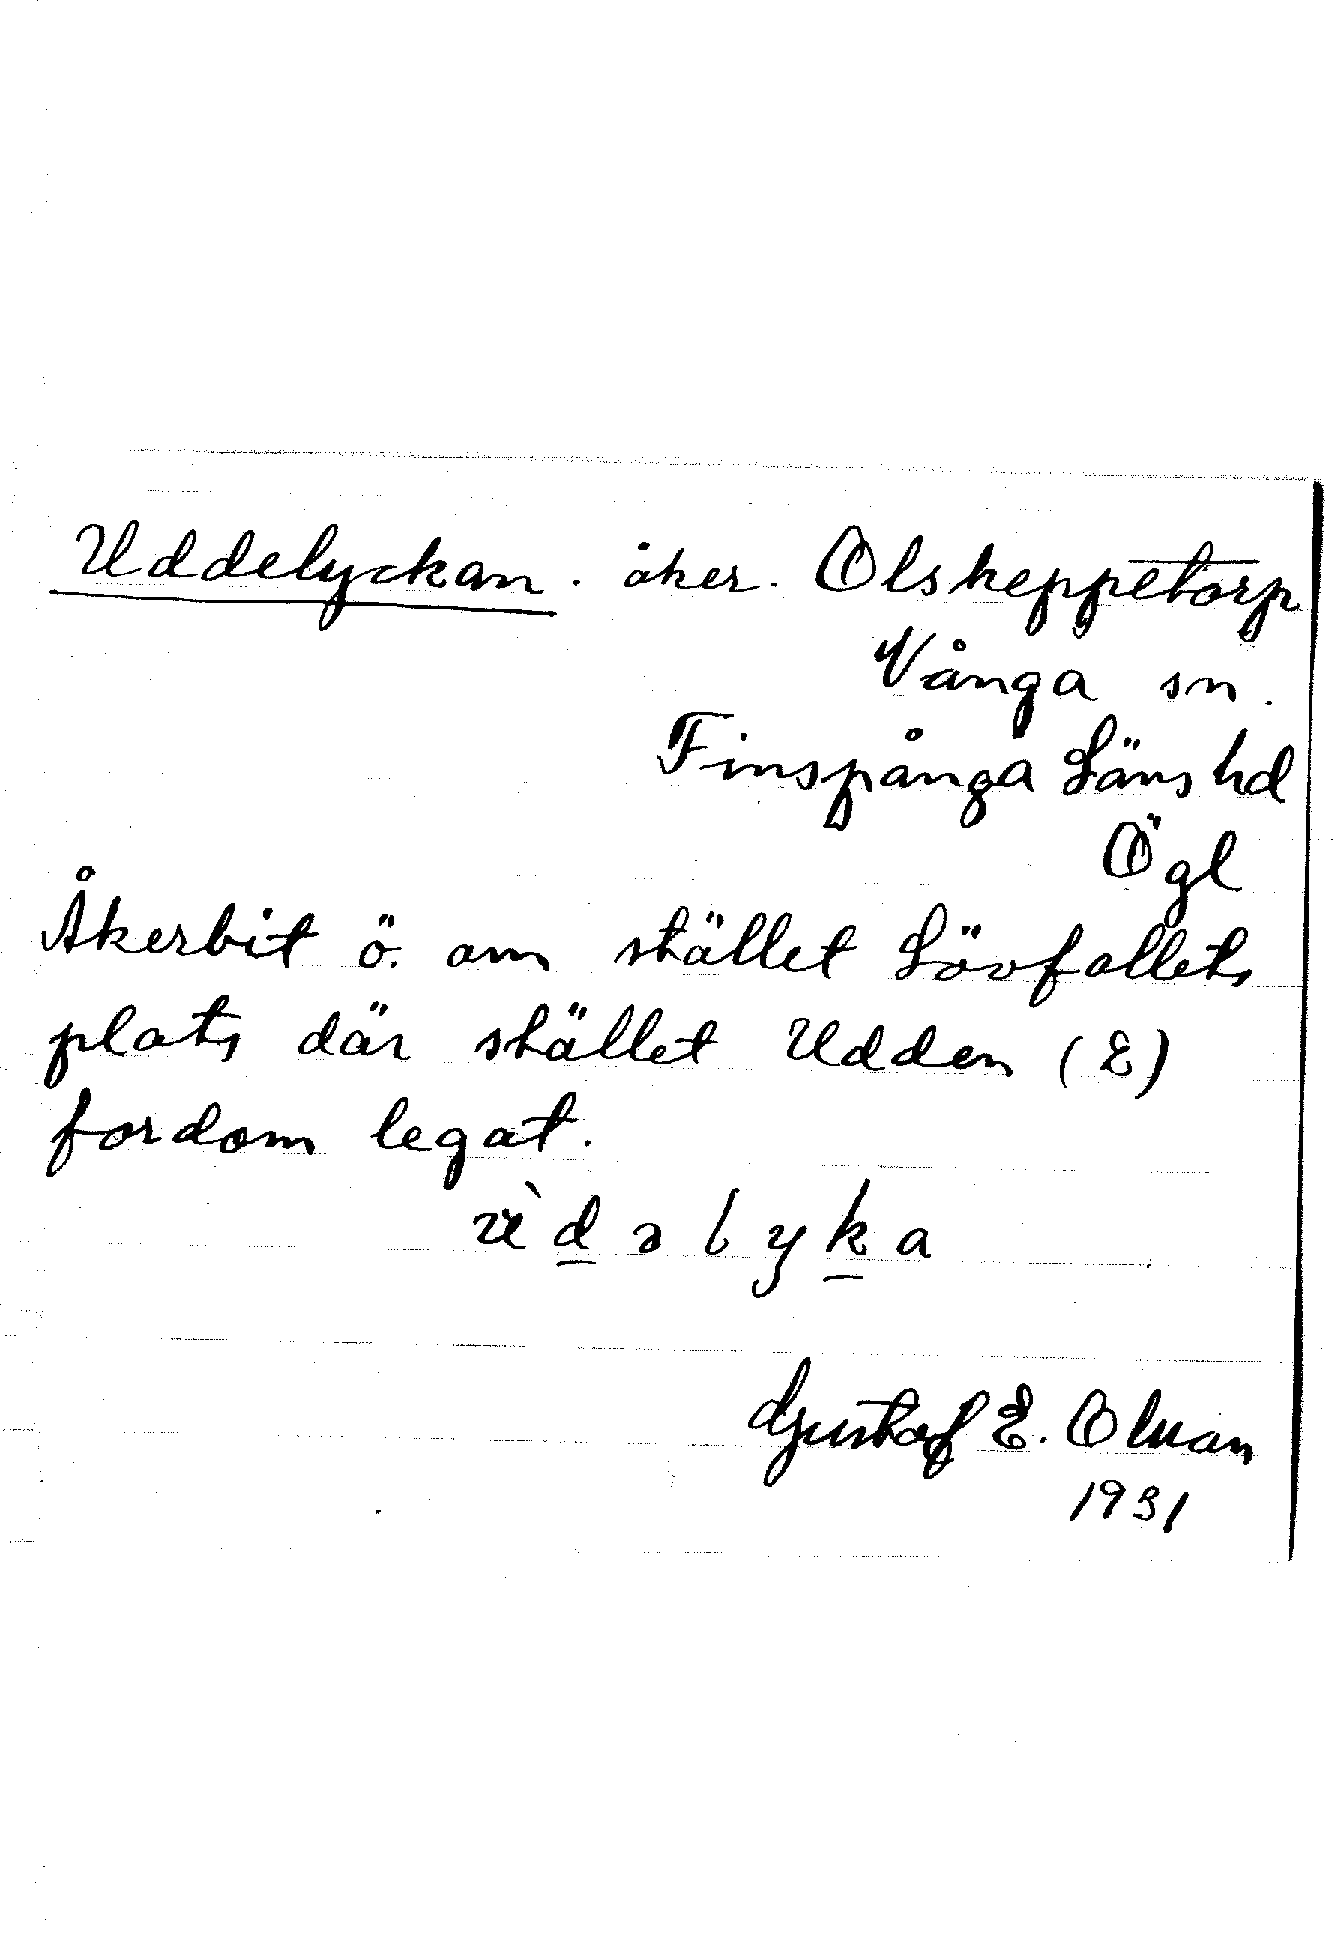 Uddelyckan. åker. Olskeppetorp
Vånga sn.
Finspånga Läns hd
Ögl
Åkerbit ö. om stället Lövfallets
plats där stället Udden (E)
fordom legat.
ùdəlyka
Gustaf E. Olman
1931